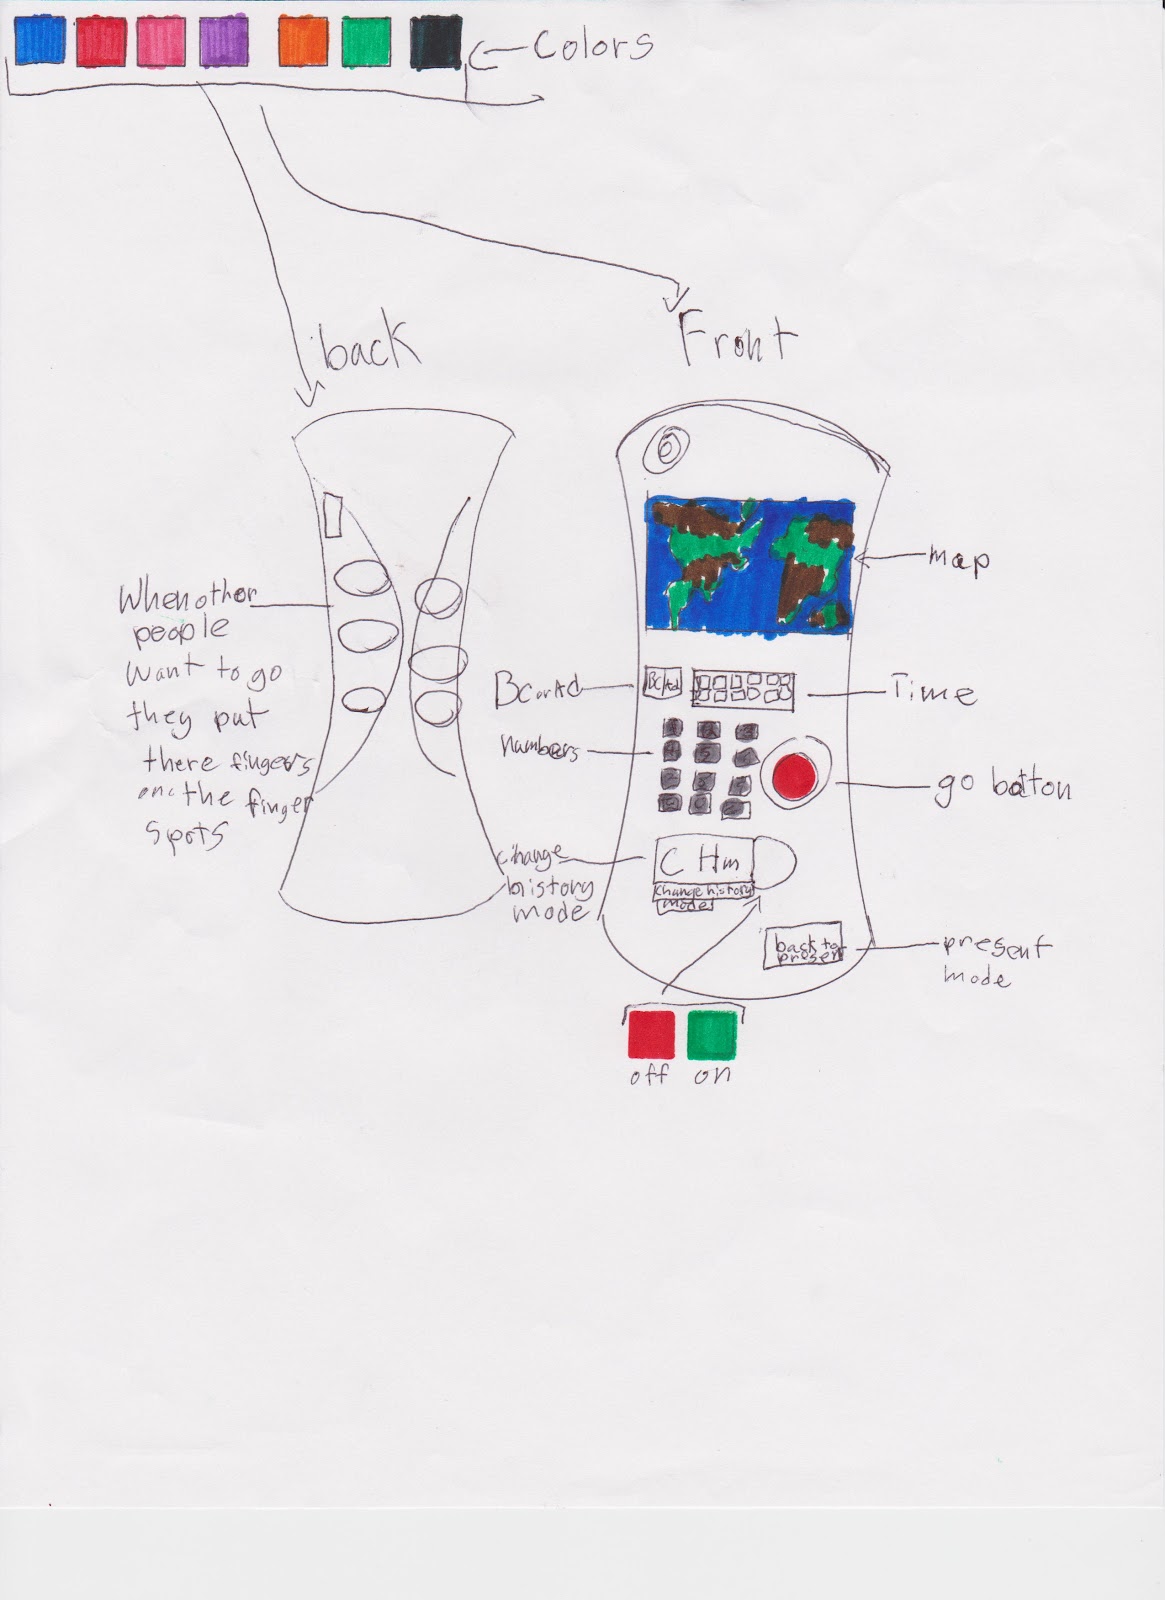 Colors
back
Front
map
When other
people
want to go
they put
there fingers
on the finger
spots
BC or Ad
BC/Ad
Time
numbers
go botton
change
history
mode
C Hm
change history
mode
back to
present
present
mode
off
on